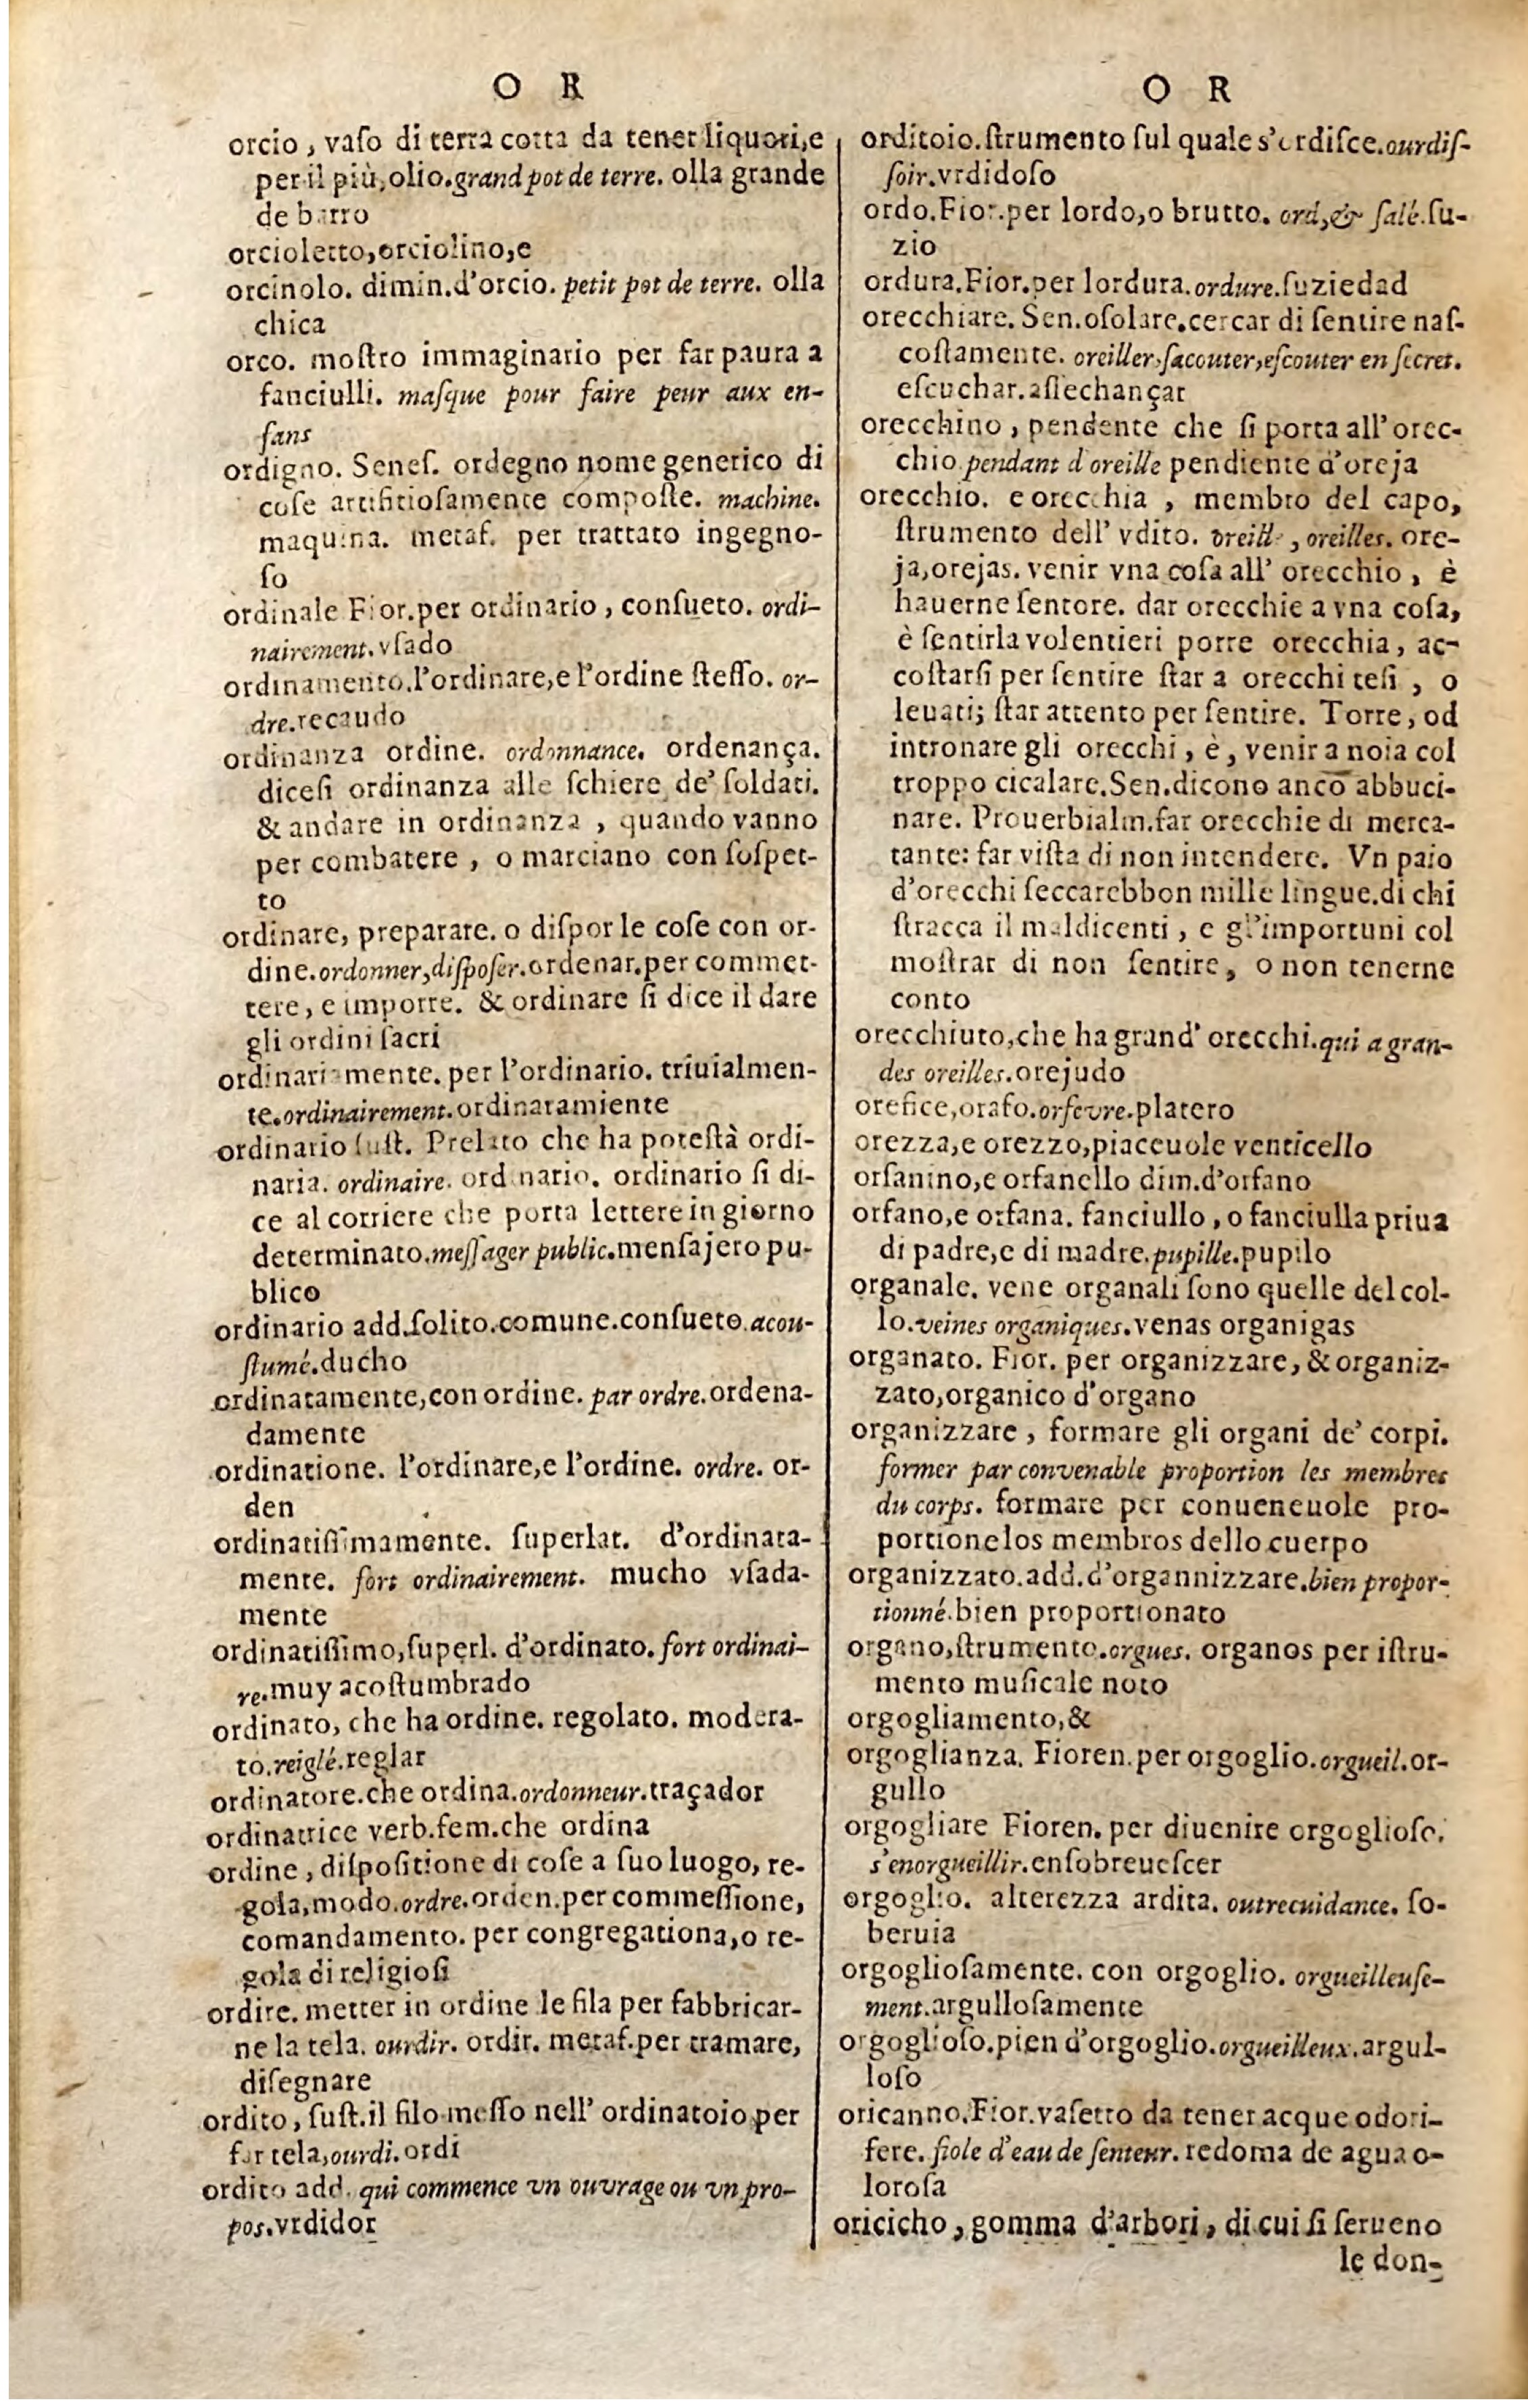 O R
orcio , vaſo di terra cotta da tener liquori,e
per il più,olio.grand pot de terre. olla grande
de barro
orcioletto,orciolino,e
orcinolo. dimin.d'orcio. petit pot de terre. olla
chica
orco. moſtro immaginario per far paura a
fanciulli. maſque pour faire peur aux en-
fans
ordigno. Seneſ. ordegno nome generico di
coſe artifitioſamente compoſte. machine.
maquina. metaf. per trattato ingegno-
ſo
ordinale Fior.per ordinario , conſueto. ordi-
nairement.vſado
ordinamento.l'ordinare,e l'ordine ſteſſo. or-
dre.recaudo
ordinanza ordine. ordonnance. ordenança.
diceſi ordinanza alle ſchiere de' ſoldati.
& andare in ordinanza , quando vanno
per combatere , o marciano con ſoſpet-
to
ordinare, preparare. o diſpor le coſe con or-
dine.ordonner,diſpoſer.ordenar.per commet-
tere, e imporre. & ordinare ſi dice il dare
gli ordini ſacri
ordinariamente. per l'ordinario. triuialmen-
te.ordinairement.ordinatamiente
ordinario ſuſt. Prelato che ha poteſtà ordi-
naria. ordinaire. ordinario. ordinario ſi di-
ce al corriere che porta lettere in giorno
determinato.meſſager public.menſajero pu-
blico
ordinario add.ſolito.comune.conſueto.acou-
ſtumé.ducho
ordinatamente,con ordine. par ordre.ordena-
damente
ordinatione. l'ordinare,e l'ordine. ordre. or-
den
ordinatiſſimamente. ſuperlat. d'ordinata-
mente. fort ordinairement. mucho vſada-
mente
ordinatiſſimo,ſuperl. d'ordinato.fort ordinai-
re.muy acoſtumbrado
ordinato, che ha ordine. regolato. modera-
to.reiglé.reglar
ordinatore.che ordina.ordonneur.traçador
ordinatrice verb.fem.che ordina
ordine , diſpoſitione di coſe a ſuo luogo, re-
gola,modo.ordre.orden.per commeſſione,
comandamento. per congregationa,o re-
gola di religioſi
ordire. metter in ordine le fila per fabbricar-
ne la tela. ourdir. ordir. metaf.per tramare,
diſegnare
ordito , ſuſt.il filo meſſo nell' ordinatoio per
far tela,ourdi.ordi
ordito add. qui commence vn ouvrage ou vn pro-
pos.vrdidor
O R
orditoio.ſtrumento ſul quale s'ordiſce.ourdiſ-
ſoir.vrdidoſo
ordo.Fior.per lordo,o brutto. ord,& ſalé.ſu-
zio
ordura.Fior.per lordura.ordure.ſuziedad
orecchiare. Sen.oſolare.cercar di ſentire naſ-
coſtamente. oreiller,ſacouter,eſcouter en ſecret.
eſcuchar.aſſechançar
orecchino , pendente che ſi porta all' orec-
chio.pendant d'oreille pendiente d'oreja
orecchio. e orecchia , membro del capo,
ſtrumento dell' vdito. oreille , oreilles. ore-
ja,orejas. venir vna coſa all' orecchio , è
hauerne ſentore. dar orecchie a vna coſa,
è ſentirla volentieri porre orecchia , ac-
coſtarſi per ſentire ſtar a orecchi teſi , o
leuati; ſtar attento per ſentire. Torre, od
intronare gli orecchi , è, venir a noia col
troppo cicalare.Sen.dicono anco abbuci-
nare. Prouerbialm.far orecchie di merca-
tante: far viſta di non intendere. Vn paio
d'orecchi ſeccarebbon mille lingue.di chi
ſtracca il maldicenti , e gl'importuni col
moſtrar di non ſentire, o non tenerne
conto
orecchiuto,che ha grand' orecchi.qui a gran-
des oreilles.orejudo
orefice,orafo.orfevre.platero
orezza,e orezzo,piaceuole venticello
orfanino,e orfanello dim.d'orfano
orfano,e orfana. fanciullo , o fanciulla priua
di padre,e di madre.pupille.pupilo
organale. vene organali ſono quelle del col-
lo.veines organiques.venas organigas
organato. Fior. per organizzare, & organiz-
zato,organico d'organo
organizzare , formare gli organi de' corpi.
former par convenable proportion les membres
du corps. formare per conueneuole pro-
portione los membros dello cuerpo
organizzato.add.d'organnizzare.bien propor-
tionné.bien proportionato
organo,ſtrumento.orgues. organos per iſtru-
mento muſicale noto
orgogliamento,&
orgoglianza. Fioren.per orgoglio.orgueil.or-
gullo
orgogliare Fioren. per diuenire orgoglioſo.
s'enorgueillir.enſobreueſcer
orgoglio. alterezza ardita. outrecuidance. ſo-
beruia
orgoglioſamente. con orgoglio. orgueilleuſe-
ment.argulloſamente
orgoglioſo.pien d'orgoglio.orgueilleux.argul-
loſo
oricanno.Fior.vaſetto da tener acque odori-
fere. fiole d'eau de ſenteur. redoma de agua o-
loroſa
oricicho , gomma d'arbori , di cui ſi ſerueno
le don-